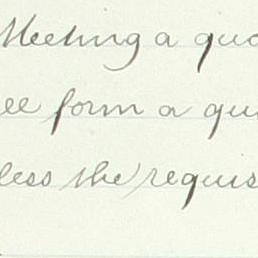 Meeting a quo
ee form a qu
less the requis